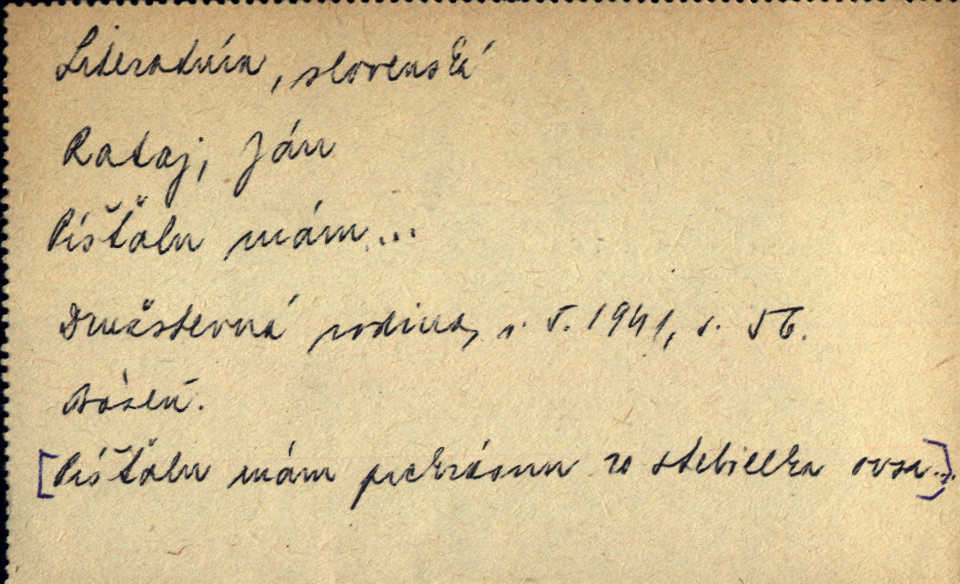 Literatúra, slovenská
Rataj, Ján
Píšťalu mám...
Družstevná rodina, r. 5. 1941, s. 56.
Báseň.
[Píšťalu mám prekrásnu zo stebielka ovsa...]